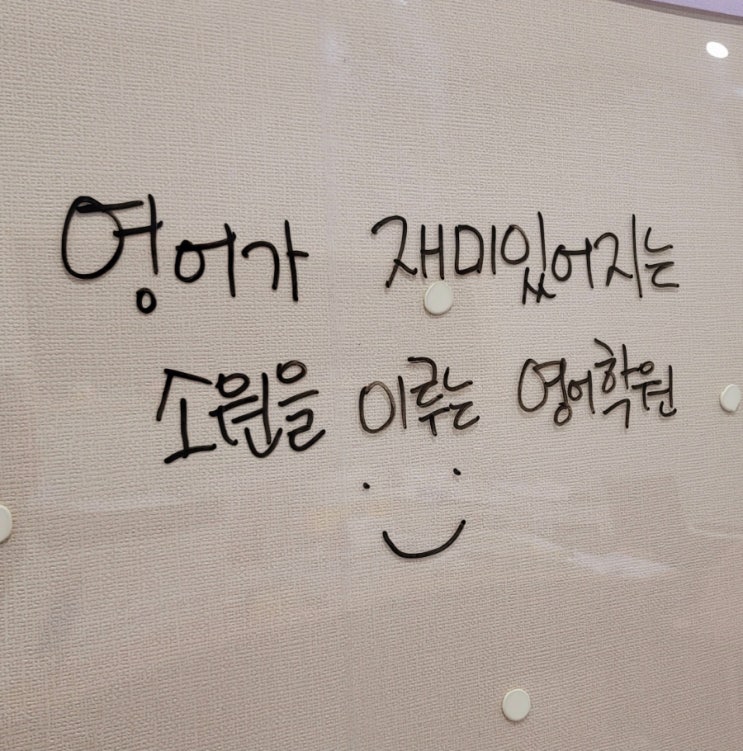 영어가 재미있어지는
소원을 이루는 영어학원